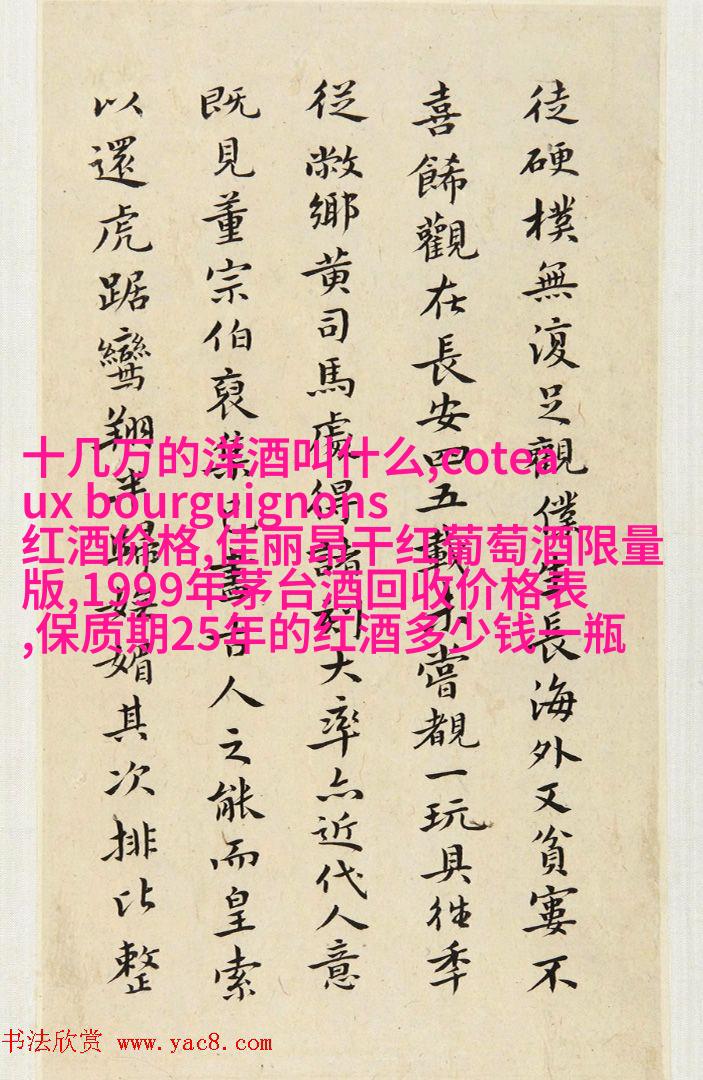 徒硬樸無復足觀僕生長海外又貧窶不
喜餙觀在長安四五載未嘗覩一玩具往季
從敝鄉黃司馬處得諸刻大率亦近代人意
既見董宗伯裒集已盡古人之能而皇索
以還虎踞鸞翔半歸妍媚其次排比整
十几万的洋酒叫什么,cotea
ux bourguignons
红酒价格,佳丽昂干红葡萄酒限量
版,1999年茅台酒回收价格表
,保质期25年的红酒多少钱一瓶
书法欣赏 www.yac8.com